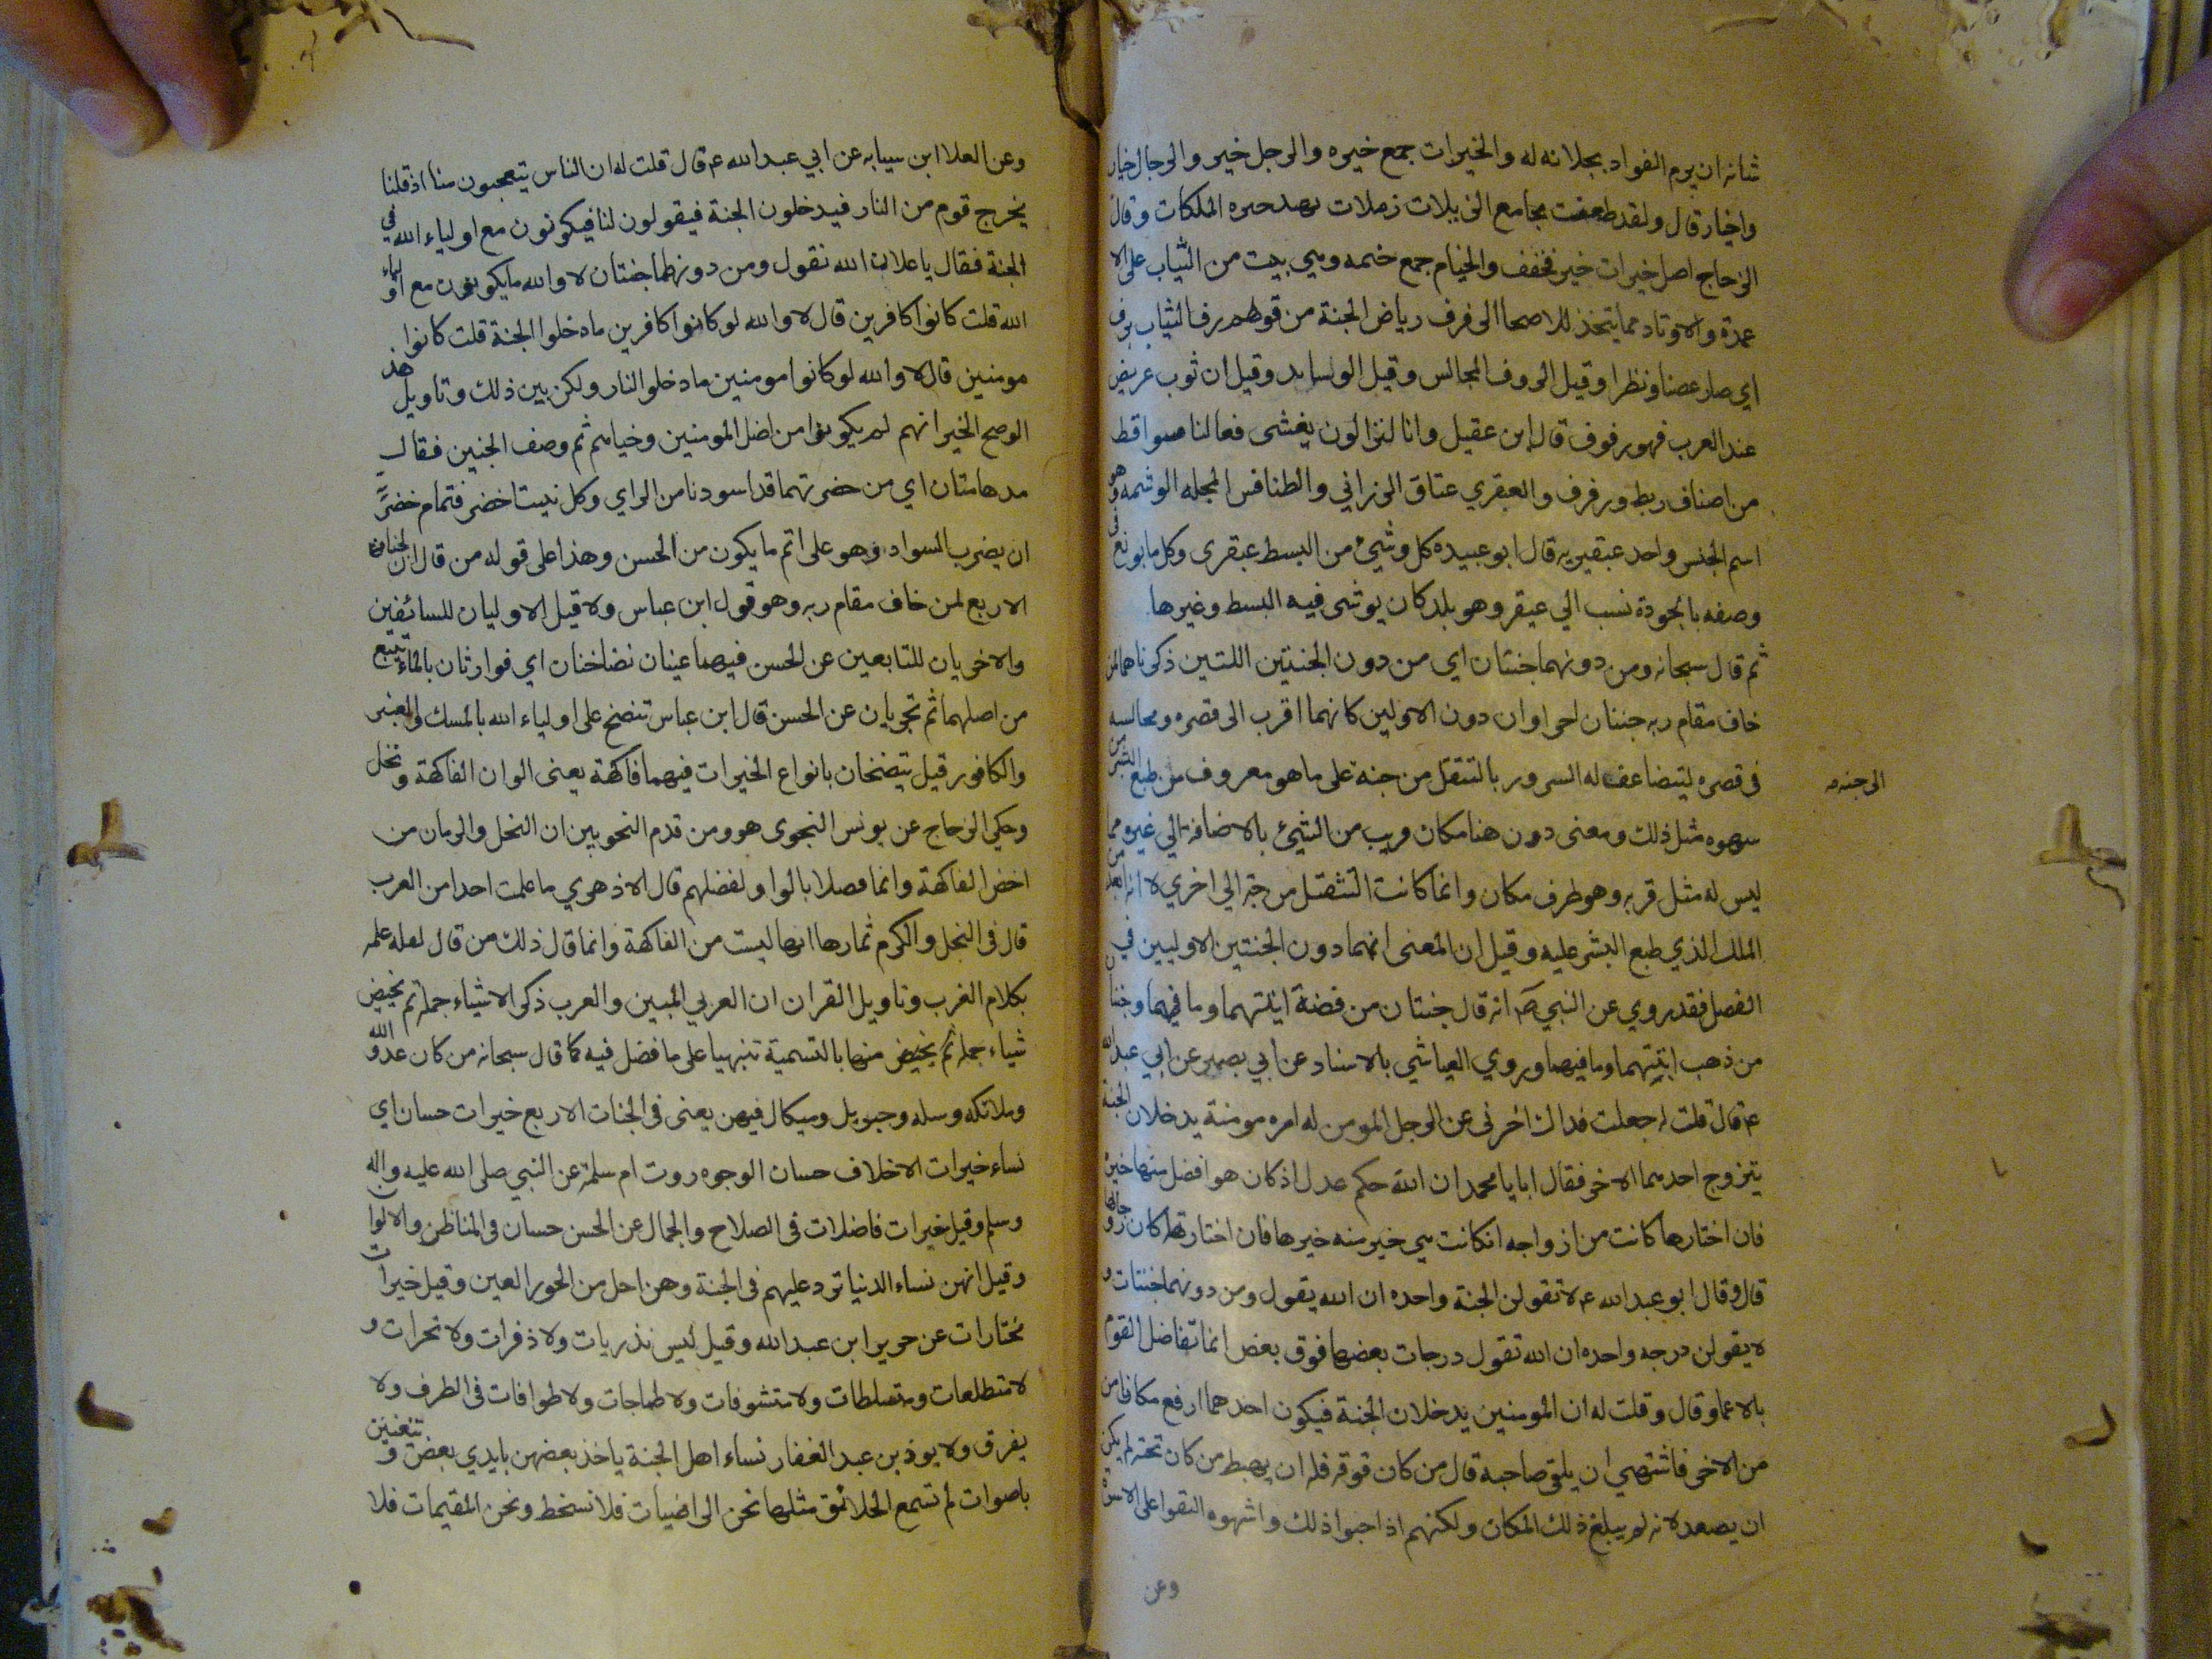 شانه ان يرم الفواد بجلانه له والخيرات جمع خيره والرجل خير والرجال خيار
واخيار قال ولقد طعنت مجامع الربلات ربلات هند خيره الملكات وقال
الزجاج اصل خيرات خير فخفف والخيام جمع خيمه وهي بيت من الثياب على الا
عمدة والاوتاد مما يتخذ للاصحا الرفرف رياض الجنة من قولهم رف الثياب يرف
اي صار غصنا ونظرا وقيل الرفوف المجالس وقيل الوسايد وقيل ان ثوب عريض
عند العرب فهو رفوف قال ابن عقيل وانا لنزالون يغشى فعالنا سواقط
من اصناف ريط ورفرف والعبقري عتاق الزرابي والطنافس المجمله الوشمه وهو
اسم الجنس واحد عبقيريه قال ابو عبيده كل وشي من البسط عبقرى وكل ما بونغ في
وصفه بالجودة نسب الي عبقر وهو بلد كان يوشى فيه البسط وغيرها
ثم قال سبحانه ومن دونهما جنتان اي من دون الجنتين اللتين ذكرناهما لمن
خاف مقام ربه جنتان اخراوان دون الاولين كانهما اقرب الى قصره ومجالسه
فى قصره ليتضاعف له السرور بالتنقل من جنه على ما هو معروف من طبع البشر من
الى جنه صه
سهوه مثل ذلك ومعنى دون هنا مكان قريب من الشيئ بالاضافة الي غيره مما
ليس له مثل قربه وهو ظرف مكان وانما كانت التنقل من جنة الي اخري لانه ابعد من
الملل الذي طبع البشر عليه وقيل ان المعنى انهما دون الجنتين الاوليين في
الفصل فقد روي عن النبي ص انه قال جنتان من فضة ابنيتهما وما فيهما وجنتان
من ذهب ابنيتهما وما فيهما وروي العياشي بالاسناد عن ابي بصير عن ابي عبد الله
ع قال قلت له جعلت فداك اخرني عن الرجل المومن له امره مومنة يدخلان الجنة
يتزوج احدهما الاخر فقال ابايا محمد ان الله حكم عدل اذ كان هو افضل منها خيره
فان اختارها كانت من ازواجه انكانت هي خير منه خيرها فان اختارته كان زوجا لها
قال وقال ابو عبد الله ع لا تقولن الجنة واحده ان الله يقول ومن دونهما جنتات و
لا يقولن درجه واحده ان الله تقول درجات بعضها فوق بعض انما تفاضل القوم
بالاعما وقال وقلت له ان المومنين يدخلان الجنة فيكون احدهما ارفع مكانا من
من الاخر فاشتهي ان يلقى صاحبه قال من كان فوقه فله ان يهبط من كان تحته لم يكن
ان يصعد لانه لم يبلغ ذلك المكان ولكنهم اذا احبوا ذلك واشتهوه التقوا على الاسرة
وعن
وعن العلا ابن سيابه عن ابي عبد الله ع قال قلت له ان الناس يتعجبون منا اذ قلنا
يخرج قوم من النار فيدخلون الجنة فيقولون لنا فيكونون مع اولياء الله في
الجنة فقال يا علا ان الله نقول ومن دونهما جنتان لا والله ما يكونون مع اولياء
الله قلت كانوا كافرين قال لا والله لو كانوا كافرين ما دخلوا الجنة قلت كانوا
مومنين قال لا والله لو كانوا مومنين ما دخلوا النار ولكن بين ذلك وتاويل هذ
الوصح الخبر انهم لم يكونوا من افضل المومنين وخيامم ثم وصف الجنين فقال
مدهامتان اي من حضرتهما قد اسودنا من الراي وكل نبيت اخضر فتمام خضرته
ان يضرب السواد وهو على اتم ما يكون من الحسن وهذا على قوله من قال ان الجنان
الاربع لمن خاف مقام ربه وهو قول ابن عباس ولا قيل الاوليان للسائفين
والاخريان للتابعين عن الحسن فيهما عينان نضاختان اي فوارتان بالماء تنبع
من اصلهما ثم تجريان عن الحسن قال ابن عباس تنضخ على اولياء الله بالمسك والعنبر
والكافور قيل يتضخان بانواع الخيرات فيهما فاكهة يعنى الوان الفاكهة ونخل
وحكي الزجاج عن يونس النحوى هو ومن قدم النحويين ان النخل والرمان من
اخض الفاكهة وانما فصلا بالواو لفضلهم قال الاذهري ما علمت احدا من العرب
قال فى النخل والكرم ثمارها انها ليست من الفاكهة وانما قال ذلك من قال لعله علمه
بكلام الغرب وتاويل القران ان العربي المبين والعرب ذكر الاشياء جملة ثم يخيض
شياء جملة ثم يخيض منها بالتسمية تنبهيا على ما فضل فيه كا قال سبحانه من كان عدو الله
وملائكه ورسله وجبويل وميكال فيهن يعنى فى الجنات الاربع خيرات حسان اي
نساء خيرات الاخلاف حسان الوجوه روت ام سلمة عن النبي صلى الله عليه واله
وسلم وقيل خيرات فاضلات فى الصلاح والجمال عن الحسن حسان فى المناظر والالوان
وقيل انهن نساء الدنيا ترد عليهم فى الجنة وهن احل من الحور العين وقيل خيرات
مختارات عن جرير ابن عبد الله وقيل ليس نذريات ولا ذفرات ولا نحرات و
لا متطلعات ومتسلطات ولا متشوفات ولا طماجات ولا طوافات فى الطرف ولا
يفرق ولا يوذ بن عبد الغفار نساء اهل الجنة ياخذ بعضهن بايدي بعض و تتغنين
باصوات لم تسمع الخلائق مثلها نحن الراضيات فلا نسخط ونحن المقيمات فلا